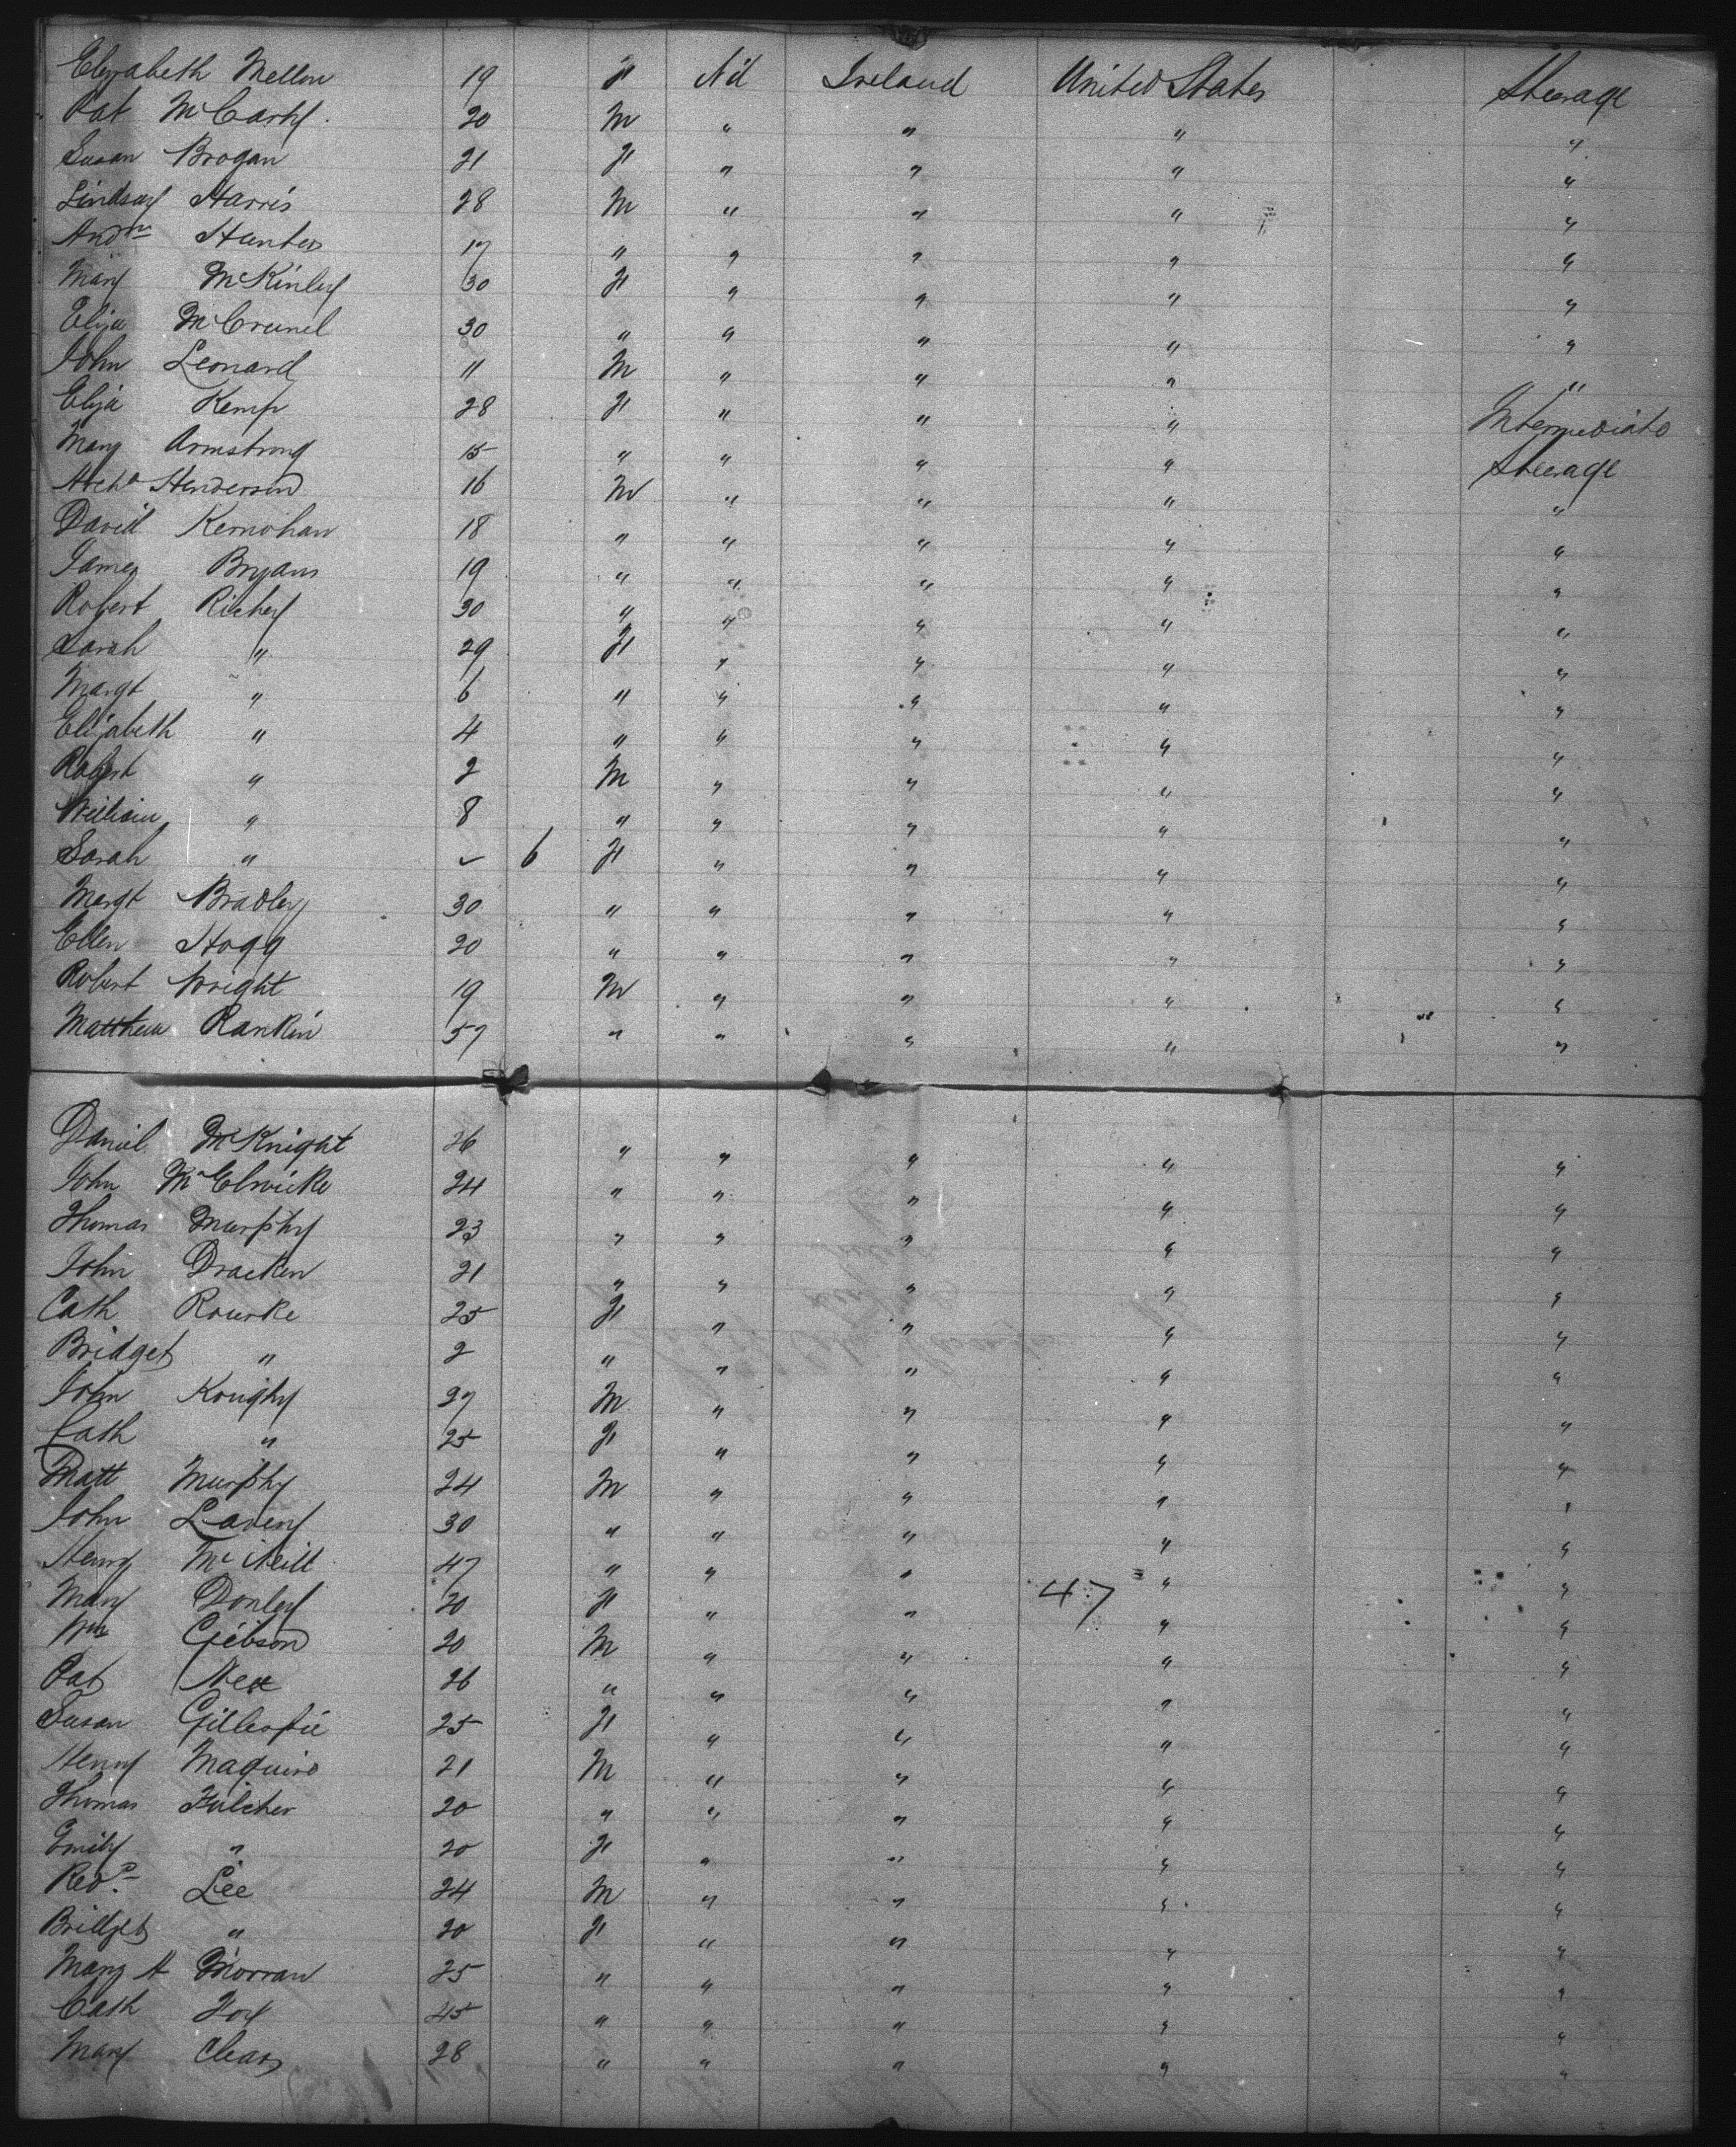 Elizabeth Mellon 19 F Nil Ireland United States Steerage
Pat McCarty 20 M " " " "
Susan Brogan 21 F " " " "
Lindsay Harris 28 M " " " "
Andw Hunter 17 " " " " "
Mary McKinley 30 F " " " "
Eliza McCrunel 30 " " " " "
John Leonard 11 M " " " "
Eliza Kemp 28 F " " " Intermediate
Mary Armstrong 15 " " " " Steerage
Archd Henderson 16 M " " " "
David Kernohan 18 " " " " "
James Bryans 19 " " " " "
Robert Richey 30 " " " " "
Sarah " 29 F " " " "
Margt " 6 " " " " "
Elizabeth " 4 " " " " "
Robert " 2 M " " " "
William " 8 " " " " "
Sarah " ✓ 6 F " " " "
Margt Bradley 30 " " " " "
Ellen Hogg 20 " " " " "
Robert Wright 19 M " " " "
Matthew Rankin 57 " " " " "
Daniel McKnight 26 " " " " "
John 24 " " " " "
Thomas Murphy 23 " " " " "
John Bracken 21 " " " " "
Cath Rourke 25 F " " " "
Bridget " 2 " " " " "
John Koughy 27 M " " " "
Cath " 25 F " " " "
Matt Murphy 24 M " " " "
John Lavery 30 " " " " "
Henry McNeill 47 " " " " "
Mary Donley 20 F " " 47 " "
Wm Gibson 20 M " " " "
Pat 26 " " " " "
Susan Gillespie 25 F " " " "
Henry Maguire 21 M " " " "
Thomas Fulcher 20 " " " " "
Emily " 20 F " " " "
Revd Lee 24 M " " " "
Bridget " 20 F " " " "
Mary A Morran 25 " " " " "
Cath Foy 45 " " " " "
Mary Clears 28 " " " " "